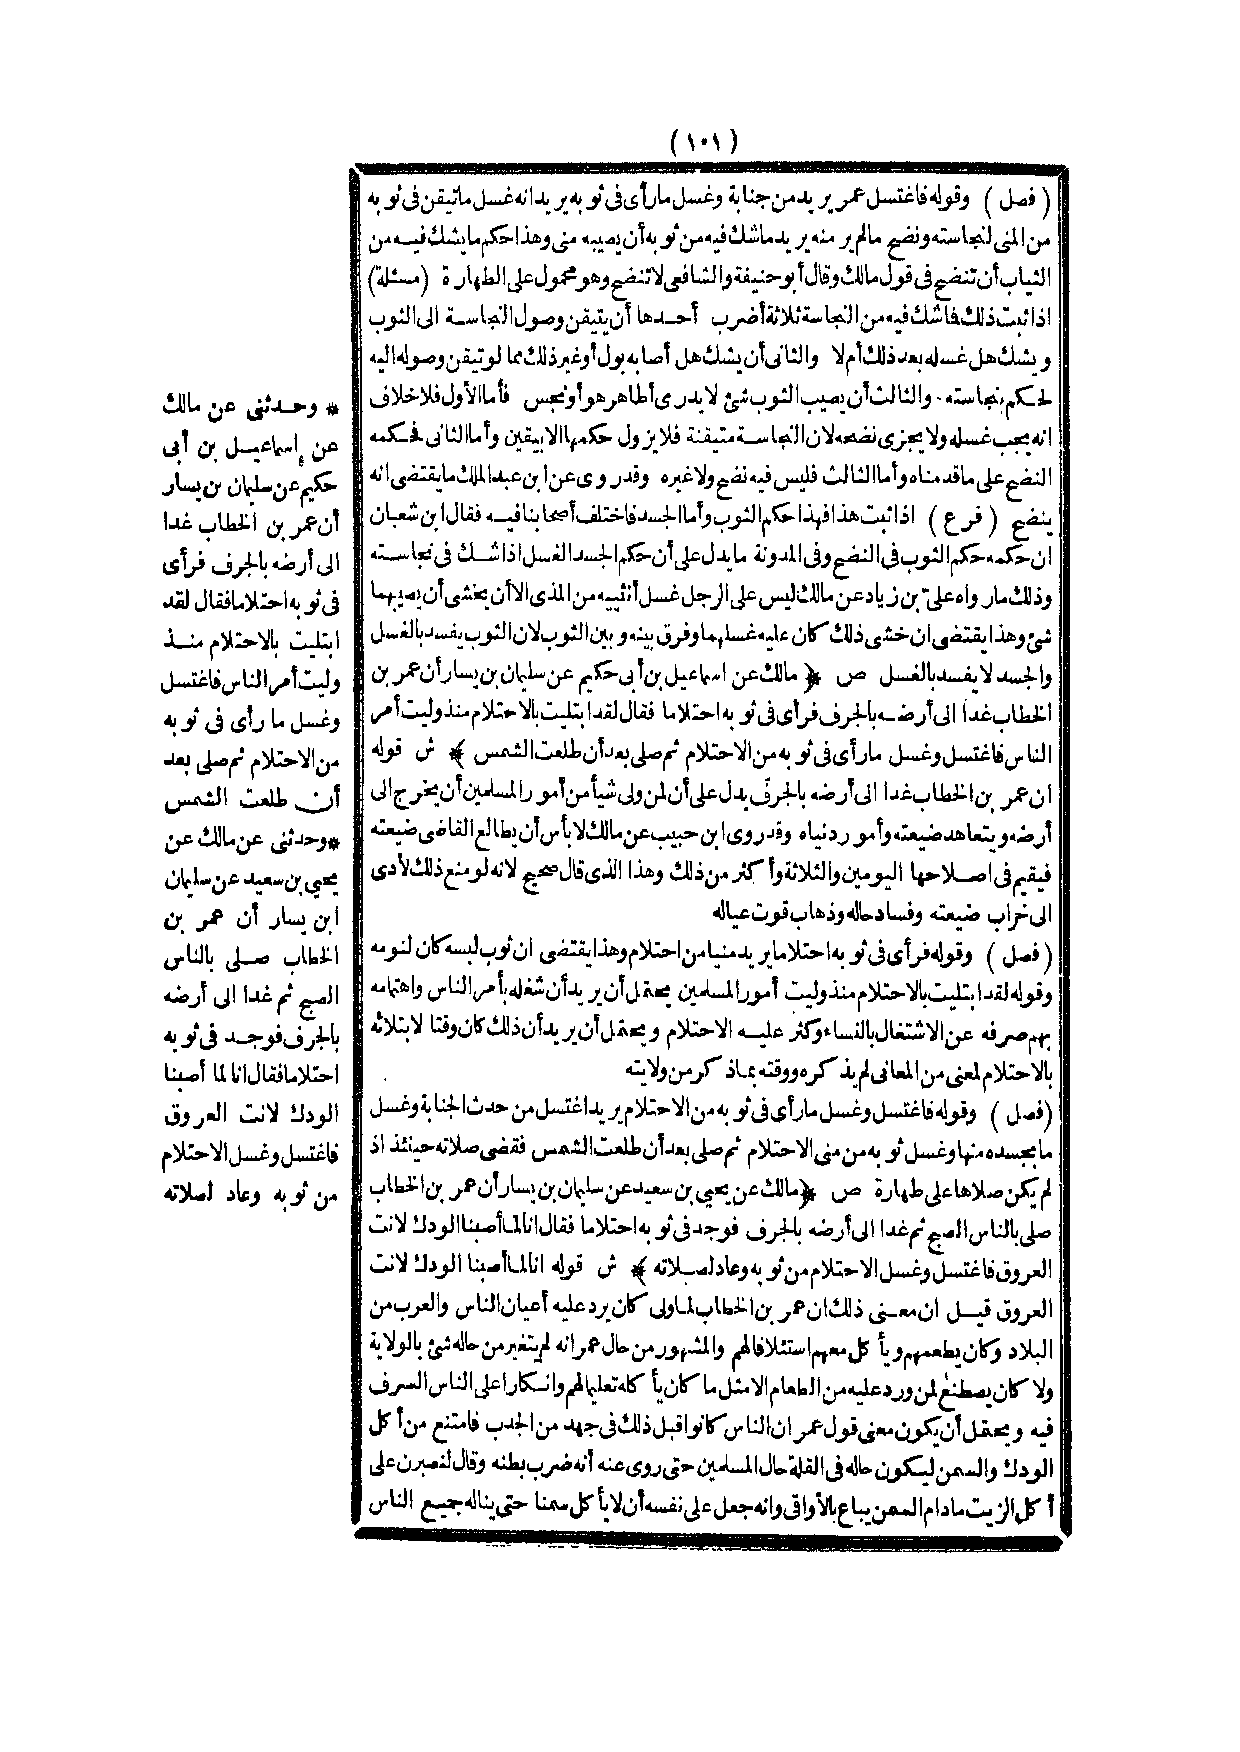 (١٠١)
(فصل) وقوله فاغتسل عمر يريد من جنابة وغسل مارأى فى ثوبه يريد انه غسل ماتيقن فى ثوبه
من المنى لنجاسته ونضح مالم ير منه يريد ماشك فيه من ثوبه أن يصيبه منى وهذا حكم مايشك فيه من
الثياب أن تنضح فى قول مالك وقال أبوحنيفة والشافعى لاتنضح وهو محمول على الطهارة (مسئلة)
اذا ثبت ذلك فاشك فيه من النجاسة ثلاثة أضرب أحدها أن يتيقن وصول النجاسة الى الثوب
ويشك هل غسله بعد ذلك أم لا والثانى أن يشك هل أصابه بول أو غير ذلك مما لو تيقن وصوله اليه
لحكم بنجاسته والثالث أن يصيب الثوب شئ لايدرى أطاهر هو أو نجس فأما الأول فلا خلاف
انه يجب غسله ولايجزى نضحه لان النجاسة متيقنة فلايزول حكمها الابيقين وأما الثانى فحكمه
النضح على ماقدمناه وأما الثالث فليس فيه نضح ولاغيره وقدروى عن ابن عبدالملك مايقتضى انه
ينضح (فرع) اذا ثبت هذا فهذا حكم الثوب وأما الجسد فاختلف أصحابنا فيه فقال ابن شعبان
ان حكمه حكم الثوب فى النضح وفى المدونة مايدل على أن حكم الجسد الغسل اذا شك فى نجاسته
وذلك مارواه على بن زياد عن مالك ليس على الرجل غسل أنثييه من المذى الاأن يخشى أن يصيبهما
شئ وهذا يقتضى ان خشى ذلك كان عليه غسلهما وفرق بينه وبين الثوب لان الثوب يفسد بالغسل
والجسد لايفسد بالغسل ص ﴿ مالك عن اسماعيل بن أبى حكيم عن سليمان بن يسار أن عمر بن
الخطاب غدا الى أرضه بالجرف فرأى فى ثوبه احتلاما فقال لقد ابتليت بالاحتلام منذ وليت أمر
الناس فاغتسل وغسل مارأى فى ثوبه من الاحتلام ثم صلى بعد أن طلعت الشمس ﴾ ش قوله
ان عمر بن الخطاب غدا الى أرضه بالجرف يدل على أن لمن ولى شيأ من أمور المسلمين أن يخرج الى
أرضه ويتعاهد ضيعته وأمور دنياه وقدروى ابن حبيب عن مالك لابأس أن يطالع القاضى ضيعته
فيقيم فى اصلاحها اليومين والثلاثة وأكثر من ذلك وهذا الذى قال صحيح لانه لو منع ذلك لأدى
الى خراب ضيعته وفساد حاله وذهاب قوت عياله
(فصل) وقوله فرأى فى ثوبه احتلاما يريد منيا من احتلام وهذا يقتضى ان ثوب لبسه كان لنومه
وقوله لقد ابتليت بالاحتلام منذ وليت أمور المسلمين يحتمل أن يريد أن شغله بأمر الناس واهتمامه
بهم صرفه عن الاشتغال بالنساء وكثر عليه الاحتلام ويحتمل أن يريد أن ذلك كان وقتا لابتلائه
بالاحتلام لمعنى من المعانى لم يذكره ووقته بماذكر من ولايته
(فصل) وقوله فاغتسل وغسل مارأى فى ثوبه من الاحتلام يريد اغتسل من حدث الجنابة وغسل
مابجسده منها وغسل ثوبه من منى الاحتلام ثم صلى بعد أن طلعت الشمس فقضى صلاته حينئذ اذ
لم يكن صلاها على طهارة ص ﴿ مالك عن يحيى بن سعيد عن سليمان بن يسار أن عمر بن الخطاب
صلى بالناس الصبح ثم غدا الى أرضه بالجرف فوجد فى ثوبه احتلاما فقال انا لما أصبنا الودك لانت
العروق فاغتسل وغسل الاحتلام من ثوبه وعاد لصلاته ﴾ ش قوله انا لما أصبنا الودك لانت
العروق قيل ان معنى ذلك ان عمر بن الخطاب لما ولى كان يرد عليه أعيان الناس والعرب من
البلاد وكان يطعمهم ويأكل معهم استئلافا لهم والمشهور من حال عمر انه لم يتغير من حاله شئ بالولاية
ولا كان يصطنع لمن ورد عليه من الطعام الامثل ما كان يأكله تعليما لهم وانكارا على الناس السرف
فيه ويحتمل أن يكون معنى قول عمر ان الناس كانوا قبل ذلك فى جهد من الجدب فامتنع من أكل
الودك والسمن ليكون حاله فى القلة حال المسلمين حتى روى عنه أنه ضرب بطنه وقال لتصبرن على
أكل الزيت مادام السمن يباع بالأواقى وانه جعل على نفسه أن لايأكل سمنا حتى يناله جميع الناس
* وحدثنى عن مالك
عن إسماعيل بن أبى
حكيم عن سليمان بن يسار
أن عمر بن الخطاب غدا
الى أرضه بالجرف فرأى
فى ثوبه احتلاما فقال لقد
ابتليت بالاحتلام منذ
وليت أمر الناس فاغتسل
وغسل ما رأى فى ثوبه
من الاحتلام ثم صلى بعد
أن طلعت الشمس
* وحدثنى عن مالك عن
يحيى بن سعيد عن سليمان
ابن يسار أن عمر بن
الخطاب صلى بالناس
الصبح ثم غدا الى أرضه
بالجرف فوجد فى ثوبه
احتلاما فقال انا لما أصبنا
الودك لانت العروق
فاغتسل وغسل الاحتلام
من ثوبه وعاد لصلاته